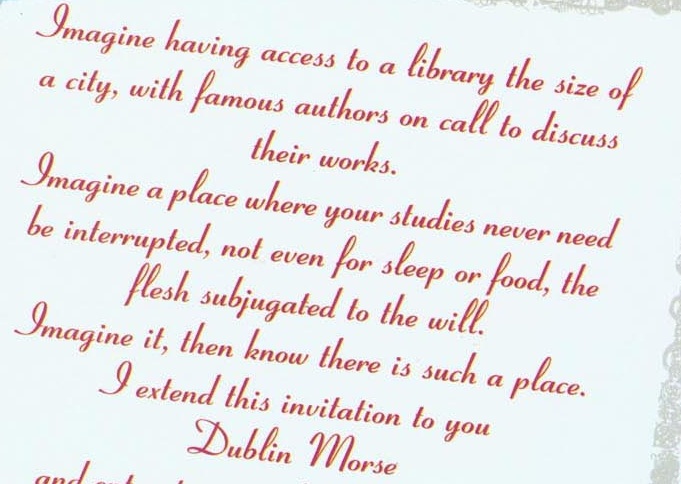 Imagine having access to a library the size of
a city, with famous authors on call to discuss
their works.
Imagine a place where your studies never need
be interrupted, not even for sleep or food, the
flesh subjugated to the will.
Imagine it, then know there is such a place.
I extend this invitation to you
Dublin Morse
and